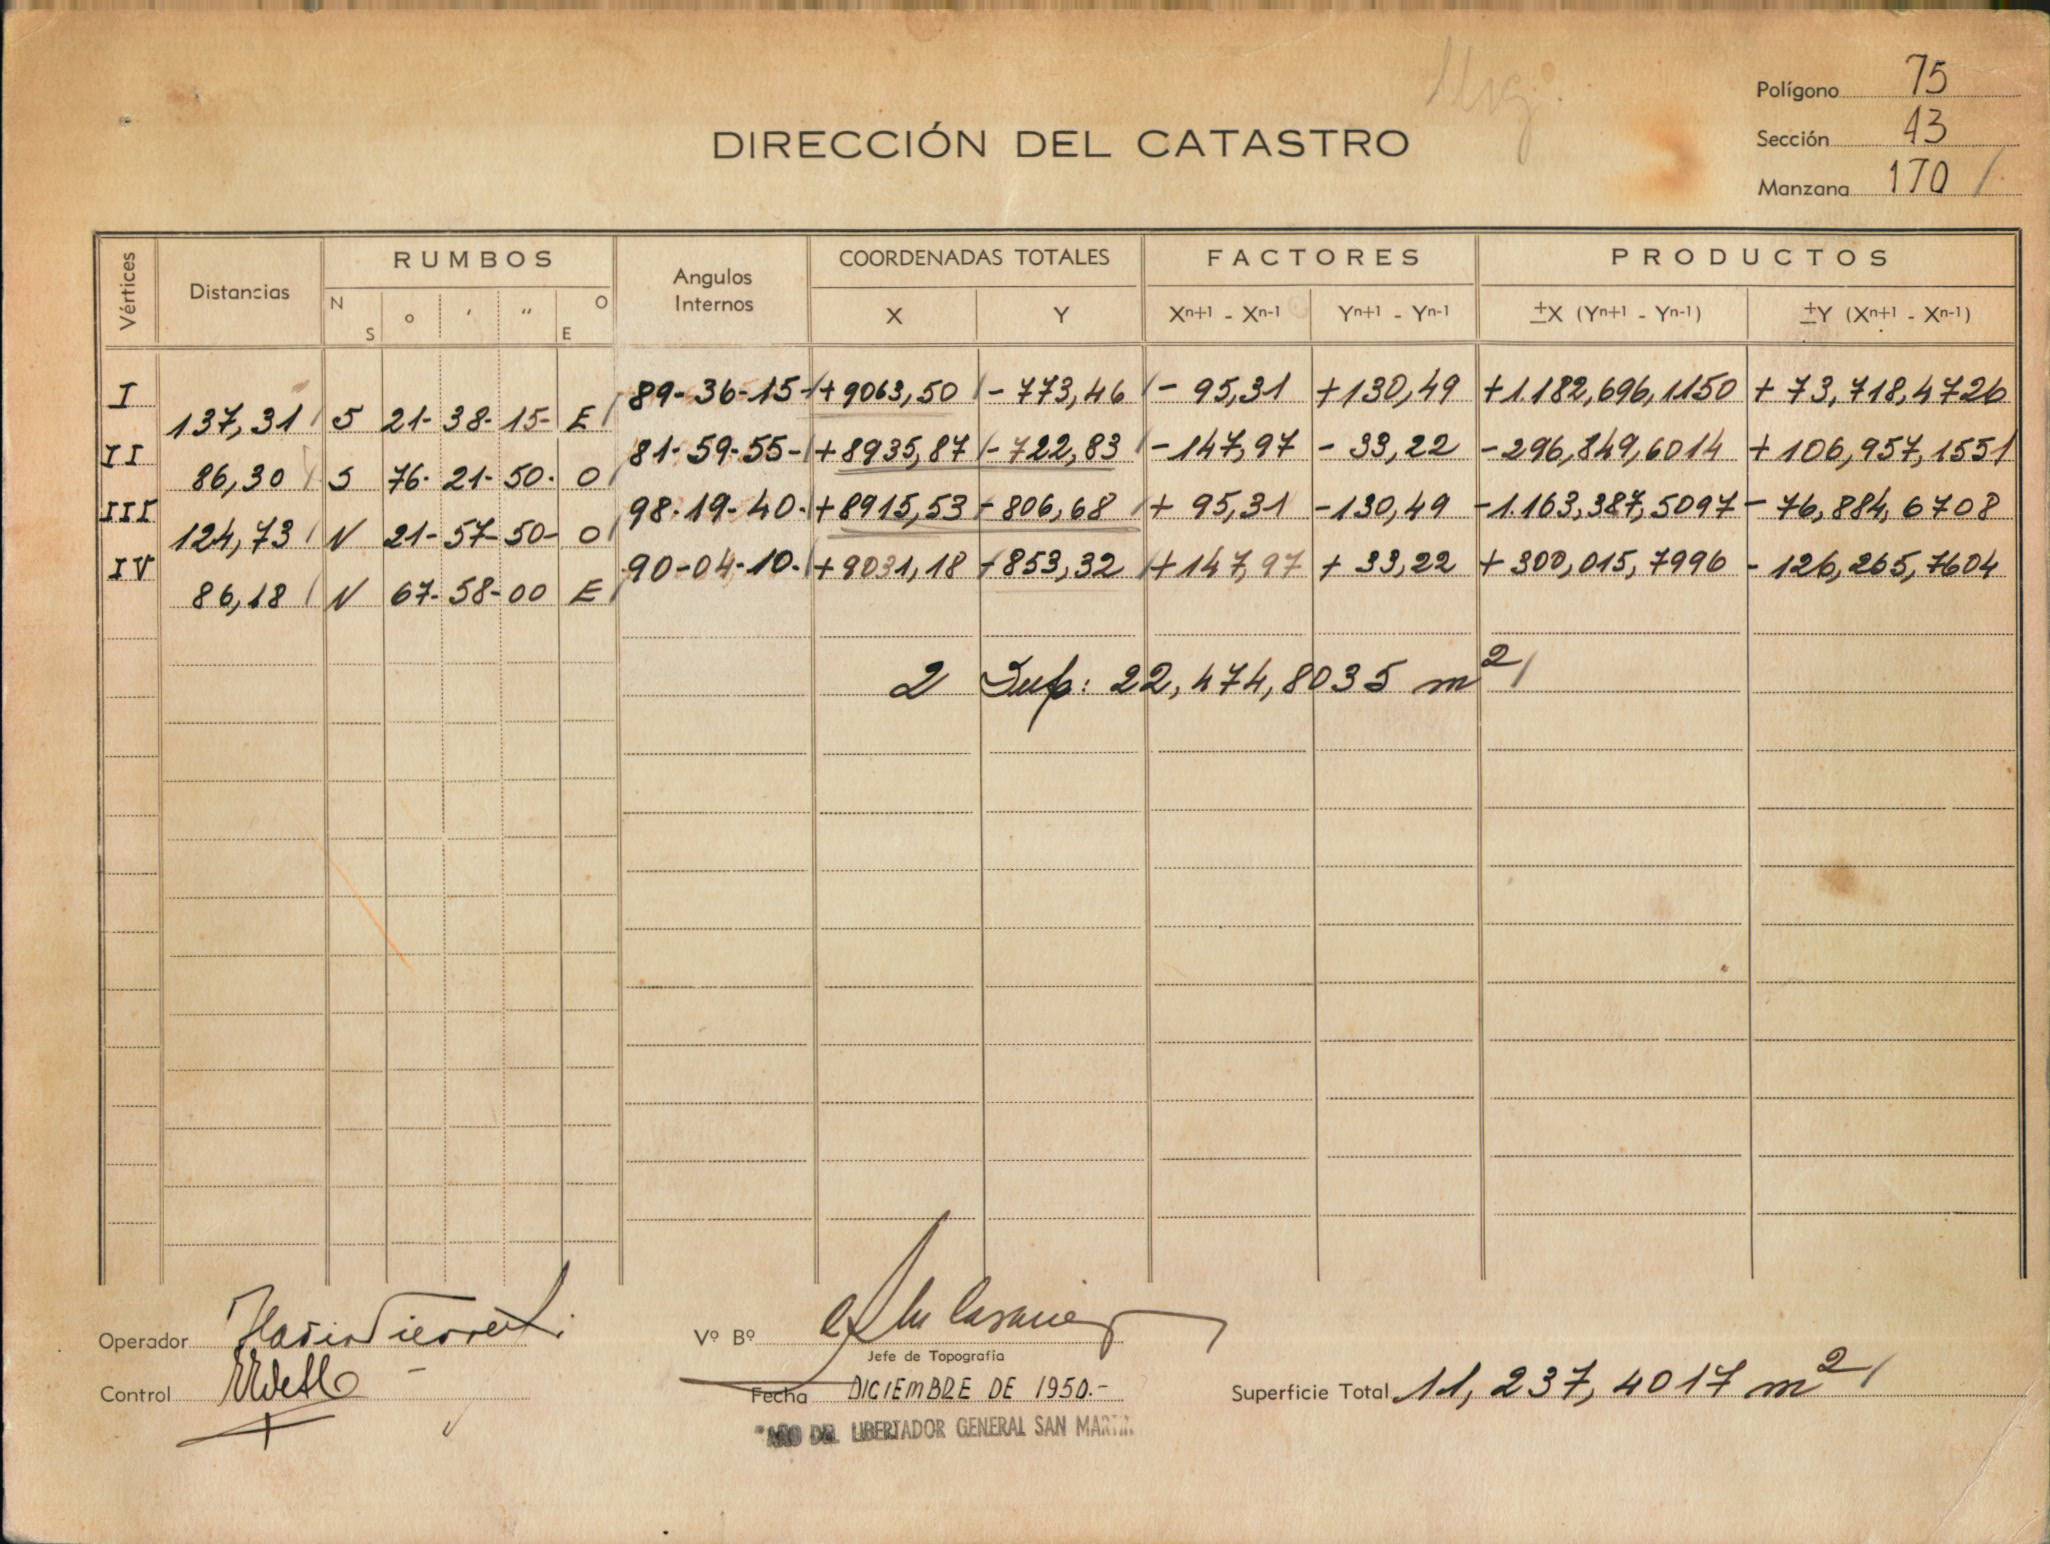 Polígono 75
DIRECCIÓN DEL CATASTRO
Sección 13
Manzana 170 /
Vértices Distancias RUMBOS Angulos Internos COORDENADAS TOTALES FACTORES PRODUCTOS
N S ° ′ ″ O E X Y Xn+1 - Xn-1 Yn+1 - Yn-1 ±X (Yn+1 - Yn-1) ±Y (Xn+1 - Xn-1)
I 89-36-15- +9063,50 - 773,46 - 95,31 +130,49 +1.182,696,1150 + 73,718,4726
137,31 S 21- 38- 15- E
II 81-59-55- +8935,87 - 722,83 -147,97 - 33,22 -296,849,6014 + 106,957,1551
86,30 S 76- 21- 50- O
III 98-19-40- +8915,53 - 806,68 + 95,31 -130,49 -1.163,387,5097 - 76,884,6708
124,73 N 21- 57- 50- O
IV 90-04-10- +9031,18 - 853,32 + 147,97 + 33,22 + 300,015,7996 - 126,265,7604
86,18 N 67- 58- 00 E
2 Sup: 22,474,8035 m2/
Operador
Vº Bº
Jefe de Topografía
Control
Fecha DICIEMBRE DE 1950.-
Superficie Total 11,237,4017 m2/
"AÑO DEL LIBERTADOR GENERAL SAN MARTIN